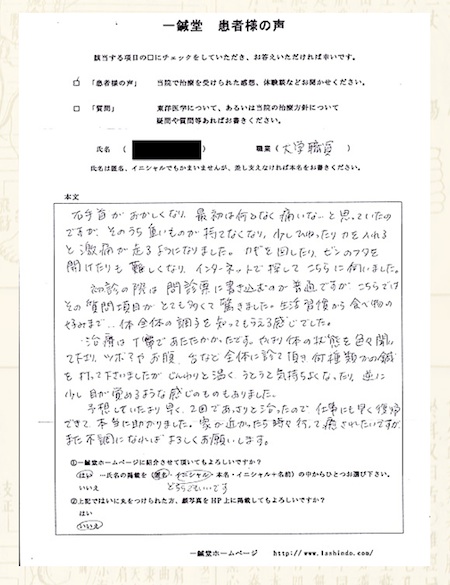 一鍼堂 患者様の声
該当する項目の口にチェックをしていただき、お答えいただければ幸いです。
「患者様の声」 当院で治療を受けられた感想、体験談などお聞かせください。
「質問」 東洋医学について、あるいは当院の治療方針について
疑問や質問等あればお書きください。
氏名 ( ) 職業 ( 大学職員 )
氏名は匿名、イニシャルでもかまいませんが、差し支えなければ本名をお書きください。
本文
右手首がおかしくなり、最初は何となく痛いな…と思っていたの
ですが、そのうち重いものが持てなくなり、少しひねったり力を入れる
と激痛が走るようになりました。カギを回したり、ビンのフタを
開けたりも難しくなり、インターネットで探してこちらに伺いました。
初診の際は問診票に書き込むのが普通ですが、こちらでは
その質問項目がとても多くて驚きました。生活習慣から食べ物の
好みまで…体全体の調子を知ってもらえる感じでした。
治療は丁寧であたたかかったです。やはり体の状態を色々聞い
て下さり、ツボやお腹、舌など全体に診て頂き何種類かの鍼
を打って下さいましたがじんわりと温く、うとうと気持ちよくなったり、逆に
少し目が覚めるような感じのものもありました。
予想していたより早く、2回であっさりと治ったので仕事にも早く復帰
できて本当に助かりました。家が近かったら時々行って癒されたいですが、
また不調になればよろしくお願いします。
①一鍼堂ホームページに紹介させて頂いてもよろしいですか?
はい …氏名の掲載を(匿名・イニシャル・本名・イニシャル+名前)の中からひとつお選び下さい。
いいえ どちらでもいいです
②上記ではいに丸をつけられた方、顔写真をHP上に掲載してもよろしいですか?
はい
いいえ
一鍼堂ホームページ http://www.1shindo.com/